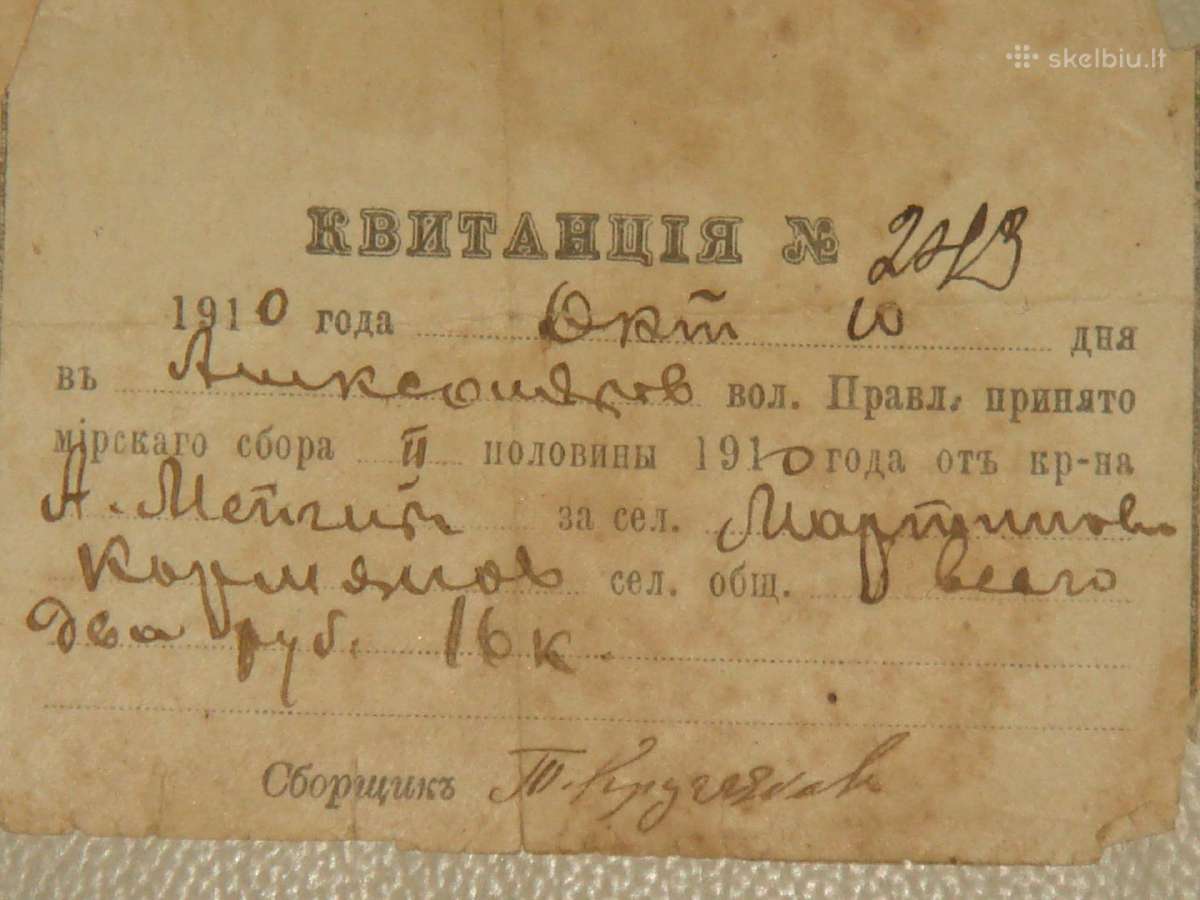 skelbiu.lt
КВИТАНЦІЯ № 243
1910 года Окт 10 дня
въ вол. Правл. принято
мірскаго сбора II половины 1910 года отъ кр-на
А. за сел. Мартинов
сел. общ. всего
два руб. 16 к.
Сборщикъ Т.